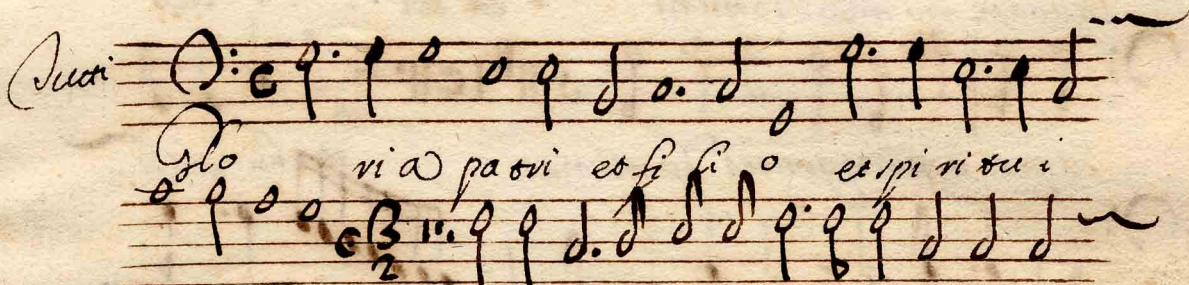 Tutti
Glo ria patri et fi li o et spi ri tu i
C 3
2